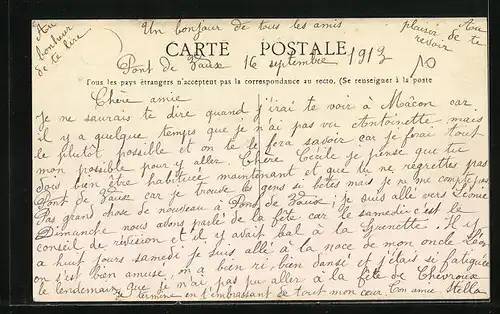 Au bonheur de te lire
Un bonjour de tous les amis
Au plaisir de te revoir
CARTE POSTALE
Pont de Vaux 16 septembre 1913
Tous les pays étrangers n'acceptent pas la correspondance au recto. (Se renseigner à la poste
Chère amie
Je ne saurais te dire quand j'irai te voir à Mâcon car
il y a quelque temps que je n'ai pas vu Antoinette mais
le plutôt possible et on te le fera savoir car je ferai tout
mon possible pour y aller. Chère Cécile je pense que tu
dois bien être habituée maintenant et que tu ne regrettes pas
Pont de Vaux car je trouve les gens si bêtes mais je ne me compte pas
Pas grand chose de nouveau à Pont de Vaux; je suis allé vers Léonie
Dimanche nous avons parlé de la fête car le samedi c'est le
conseil de révision et il y avait bal à la Grenette. Il y
a huit jours samedi je suis allé à la noce de mon oncle Léon
on s'est bien amusé, on a bien ri, bien dansé et j'étais si fatiguée
le lendemain que je n'ai pas pu aller à la fête de Chevroux
Je termine en t'embrassant de tout mon cœur. Ton amie Stella